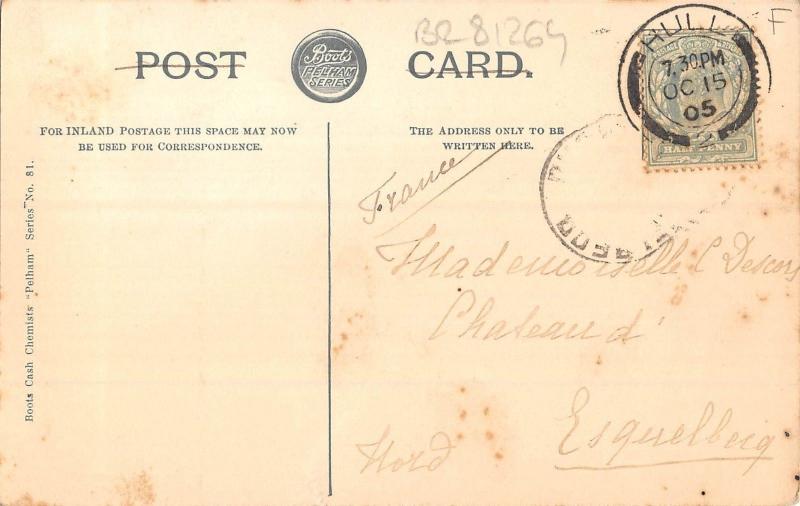 BR 81264
F
POST CARD.
Boots
PELHAM
SERIES
HULL
7.30PM
OC 15
05
HALFPENNY
FOR INLAND POSTAGE THIS SPACE MAY NOW
BE USED FOR CORRESPONDENCE.
THE ADDRESS ONLY TO BE
WRITTEN HERE.
France
Mademoiselle C Descors
Chateau d'
Esquelbecq
Nord
Boots Cash Chemists "Pelham" Series No. 81.